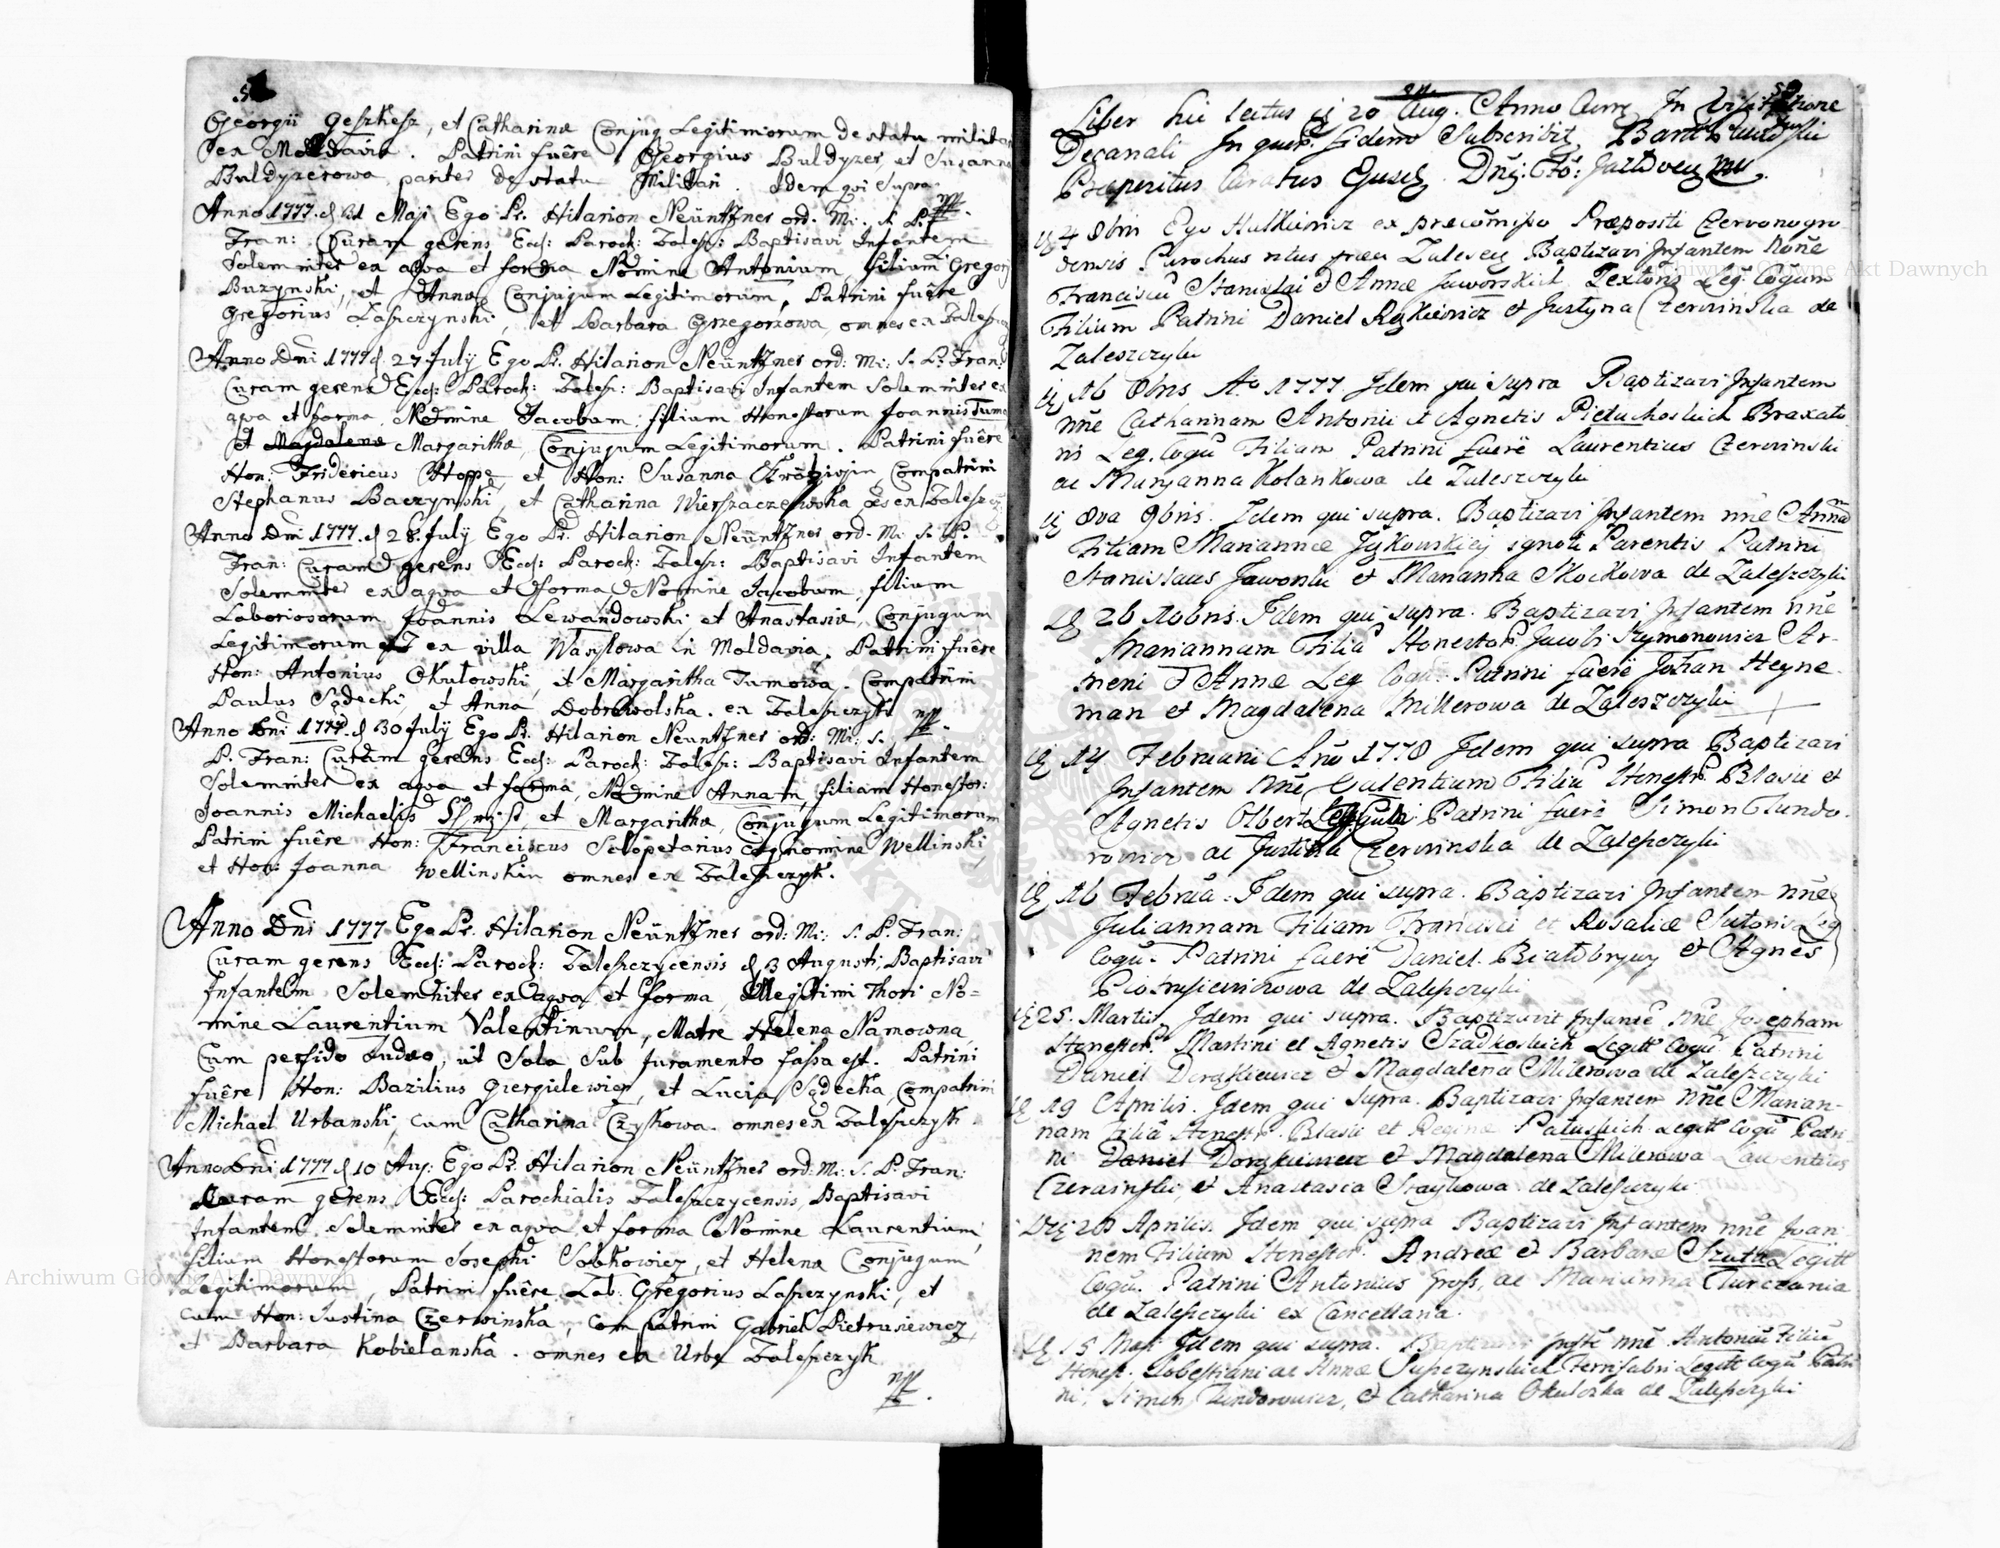 Georgii Geszkesz, et Catharinæ Conjug Legitimorum de statu militar
ex Moldavia. Patrini fuêre Georgius Buldyzer, et Susanna
Buldyzerowa, pariter de statu Militari. Idem qui Supra.
Anno 1777. d 31 Maji Ego Pr. Hilarion Neüntzner ord. Mi: S. P.
Fran: Curam gerens Eccl: Paroch: Zalesz: Baptisavi Infantem
Solemniter ex aqva et forma Nomine Antonium, filium Gregorij
Buzynski, et Annæ Conjugum Legitimorum, Patrini fuêre
Gregorius Laszczynski, et Barbara Grzegorzowa, omnes ex Zalesz
Anno Dni 1777 d. 27 July Ego Pr. Hilarion Neüntzner ord: Mi: S. P. Fran:
Curam gerens Eccl: Paroch: Zalesz: Baptisavi Infantem Solemniter ex
aqva et forma, Nomine Jacobum, filium Honestorum Joannis Tuma
et Magdalenæ Margarithæ, Conjugum Legitimorum. Patrini fuêre
Hon: Fridericus Hoppe et Hon: Susanna Compatrini
Stephanus Baczynski, et Catharina Wierszaczewska ex Zalesz
Anno Dni 1777. d 28. July Ego Pr. Hilarion Neüntzner ord. Mi: S. P.
Fran: Curam gerens Eccl: Paroch: Zalesz: Baptisavi Infantem
Solemniter ex aqva et forma, Nomine Jacobum, filium
Laboriosorum Joannis Lewandowski et Anastasiæ, Conjugum
Legitimorum ex villa Wasylowa in Moldavia, Patrini fuêre
Hon: Antonius Okulowski, et Margaritha Tumowa. Compatrini
Paulus Sądecki, et Anna Dobrowolska. ex Zaleszczyk
Anno Dni 1777. d 30 July Ego Pr. Hilarion Neüntzner ord: Mi: S.
P. Fran: Curam gerens Eccl: Paroch: Zalesz: Baptisavi Infantem
Solemniter ex aqva et forma, Nomine Annam, filiam Honestor:
Joannis Michaelis et Margarithæ, Conjugum Legitimorum
Patrini fuêre Hon: Franciscus Sclopetarius cognomine Wellinski
et Hon: Joanna Wellinskin omnes ex Zaleszczyk.
Anno Dni 1777 Ego Pr. Hilarion Neüntzner ord: Mi: S. P. Fran:
Curam gerens Eccl: Paroch: Zaleszczycensis d 3 Augusti, Baptisavi
Infantem Solemniter ex aqva et forma, Illegitimi Thori No=
mine Laurentium Valentinum, Matre Helena Namowna
Cum perfido Judæo, ut Sola Sub juramento fassa est. Patrini
fuêre Hon: Bazilius et Lucia Sądecka, Compatrini
Michael Urbanski, cum Catharina Czyskowa. omnes ex Zaleszczyk
Anno Dni 1777 d 10 Aug: Ego Pr. Hilarion Neüntzner ord: Mi: S. P. Fran:
Curam gerens Eccl: Parochialis Zaleszczycensis, Baptisavi
Infantem Solemniter ex aqva et forma Nomine Laurentium,
filium Honestorum Josephi Sobkowicz, et Helenæ Conjugum
Legitimorum, Patrini fuêre Lab: Gregorius Laszczynski, et
cum Hon: Justina Czerwinska, Compatrini Gabriel Pietrusiewicz
et Barbara Kobielanska. omnes ex Urbe Zaleszczyk
Liber hic lectus d 20 Aug. Anno Curr. In Visitatione
Decanali In quor. fidem Subscribit
Præpositus Curatus
d 4 8bris Ego Hulkiewicz ex præcomisso Præpositi Czervonogro
densis Parochus ritus græci Zalescey Baptizavi Infantem Noñe
Franciscũ Stanislai & Annæ Jaworskich Textoris Leg: Cogum
Filium Patrini Daniel et Justyna Czerwinska de
Zaleszczyki
d 16 8bris A⁰ 1777. Idem qui supra Baptizavi Infantem
nñe Catharinam Antonii et Agnetis Pietuchoskich Braxato
ris Leg. Cogũ Filiam Patrini fuerẽ Laurentius Czerwinski
ac Maryanna Kolankowa de Zaleszczyki
d 8va 9bris. Idem qui supra. Baptizavi Infantem nñe Annã
Filiam Mariannæ ignoti Parentis Patrini
Stanislaus Jaworski et Marianna Skockowa de Zaleszczyki
d 26 10bris. Idem qui supra. Baptizavi Infantem nñe
Mariannam Filiã Honestor. Jacobi Szymonowicz Ar-
meni & Annæ Leg Cogũ. Patrini fuerẽ Johan Heyne-
man et Magdalena Millerowa de Zaleszczyki
d 14 Februarii Año 1778 Idem qui supra Baptizavi
Infantem nñe Valentium Filiũ Honestr. Blasii et
Agnetis Olbert Patrini fuerẽ Simon Tundo-
rowicz ac Justina Czerwinska de Zaleszczyki
d 16 Februa: Idem qui supra. Baptizavi Infantem nñe
Juliannam Filiam Francisci et Rosaliæ Sutoris Leg
Cogũ. Patrini fuerẽ Daniel et Agnes
de Zaleszczyki
d 25. Martis Idem qui supra. Baptizavit Infantẽ nñe Josepham
Honestor. Martini et Agnetis Szadkoskich Legitt Cogũ Patrini
Daniel et Magdalena Milerowa de Zaleszczyki
d 19 Aprilis. Idem qui supra. Baptizavi Infantem nñe Marian-
nam Filiã Honestr. Blasii et Reginæ Legitt Cogũ Patri-
ni Daniel et Magdalena Milerowa Laurentius
Czerwinski, et Anastasia de Zaleszczyki
20 Aprilis. Idem qui supra Baptizavi Infantem nñe Joan
nem Filium Honestor. Andreæ et Barbaræ Legitt
Cogũ. Patrini Antonius ac Marianna
de Zaleszczyki ex Cancellaria.
d 5 Maji Idem qui supra. Baptizavi nñe Antoniũ Filiũ
Honest. ac Annæ Legitt Cogũ Patri
ni. Simon et Catharina de Zaleszczyki
Archiwum Główne Akt Dawnych
Archiwum Główne Akt Dawnych